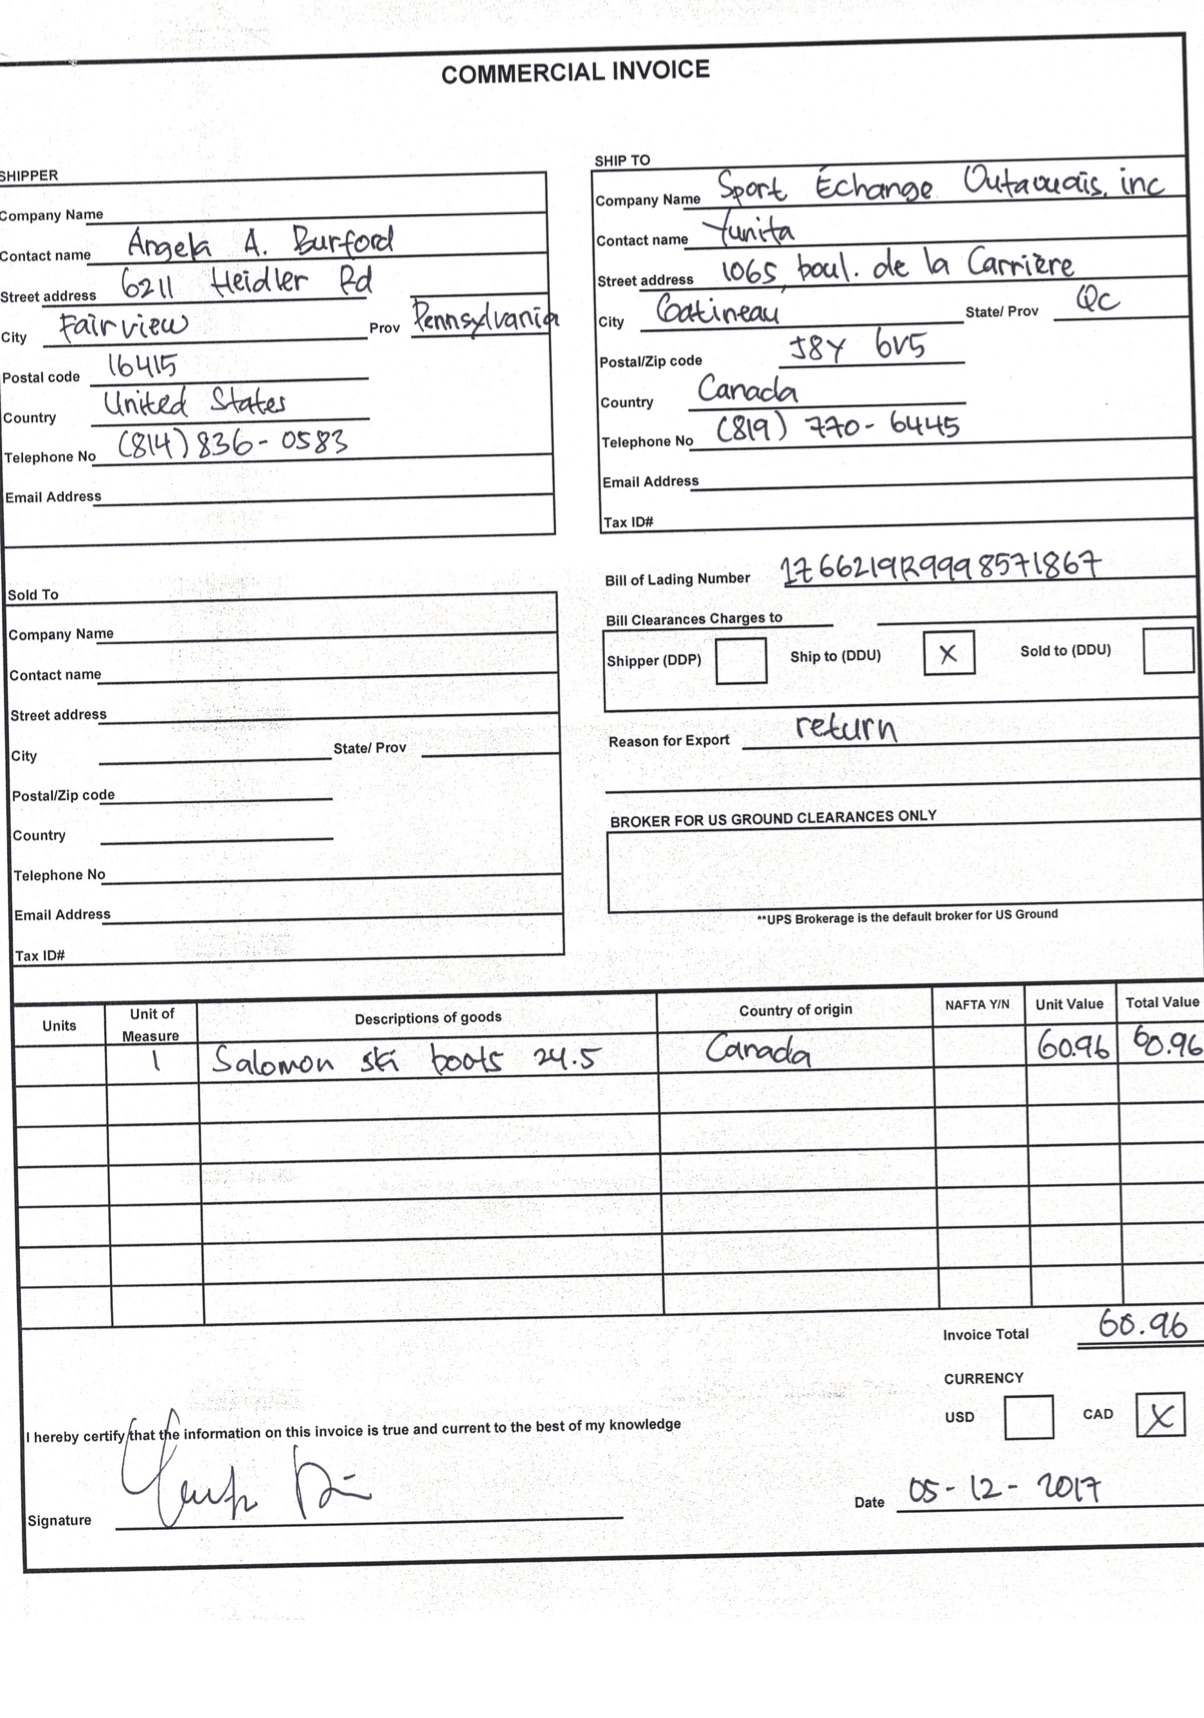 COMMERCIAL INVOICE
SHIPPER
Company Name
Contact name Angela A. Burford
Street address 6211 Heidler Rd
City Fairview Prov Pennsylvania
Postal code 16415
Country United States
Telephone No (814) 836-0583
Email Address
SHIP TO
Company Name Sport Échange Outaouais, inc
Contact name Yunita
Street address 1065, boul. de la Carrière
City Gatineau State/ Prov Qc
Postal/Zip code J8Y 6V5
Country Canada
Telephone No (819) 770-6445
Email Address
Tax ID#
Sold To
Company Name
Contact name
Street address
City State/ Prov
Postal/Zip code
Country
Telephone No
Email Address
Tax ID#
Bill of Lading Number 1Z66219R9998571867
Bill Clearances Charges to
Shipper (DDP) Ship to (DDU) X Sold to (DDU)
Reason for Export return
BROKER FOR US GROUND CLEARANCES ONLY
**UPS Brokerage is the default broker for US Ground
Units Unit of Measure Descriptions of goods Country of origin NAFTA Y/N Unit Value Total Value
1 Salomon ski boots 24.5 Canada 60.96 60.96
Invoice Total 60.96
CURRENCY
USD CAD X
I hereby certify that the information on this invoice is true and current to the best of my knowledge
Signature
Date 05-12-2017